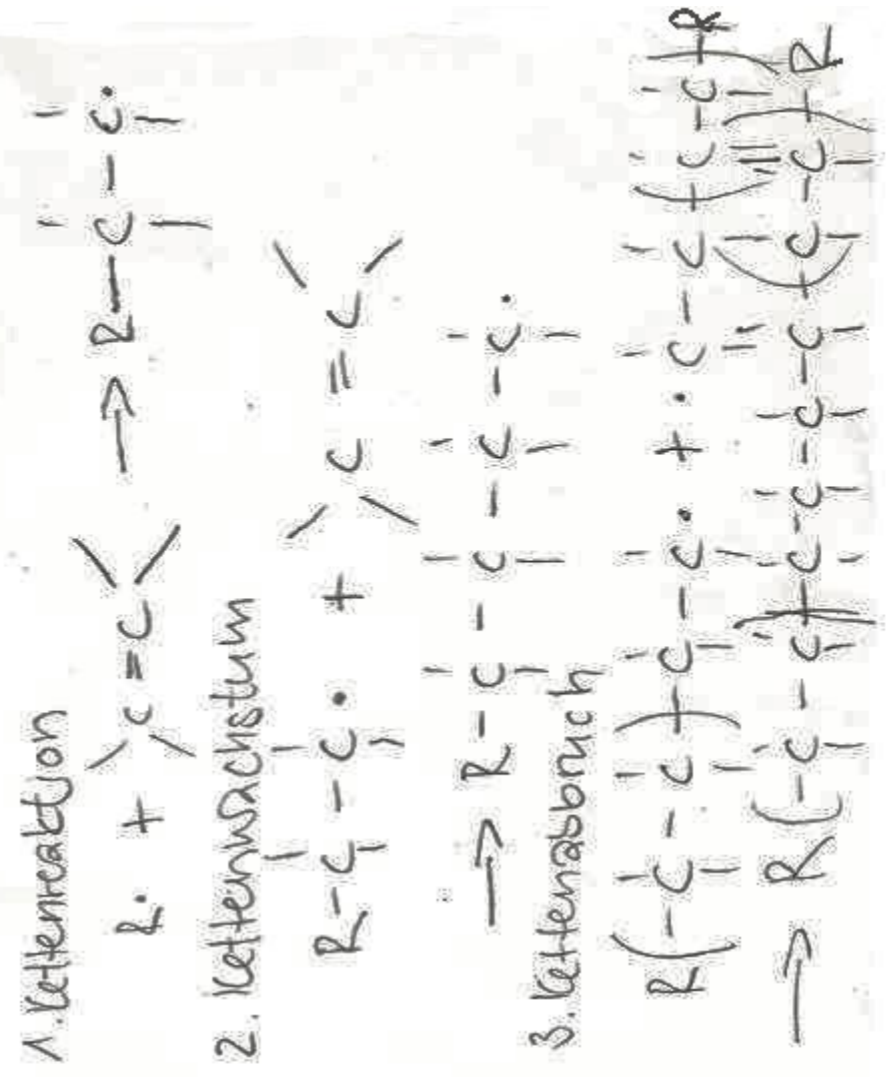 1. Kettenreaktion
R· + C=C → R-C-C·
2. Kettenwachstum
R-C-C· + C=C
→ R-C-C-C-C·
3. Kettenabbruch
R(-C-C-)C-C· + ·C-C(-C-C-)R
→ R(-C-C-)C-C-C-C(-C-C-)R